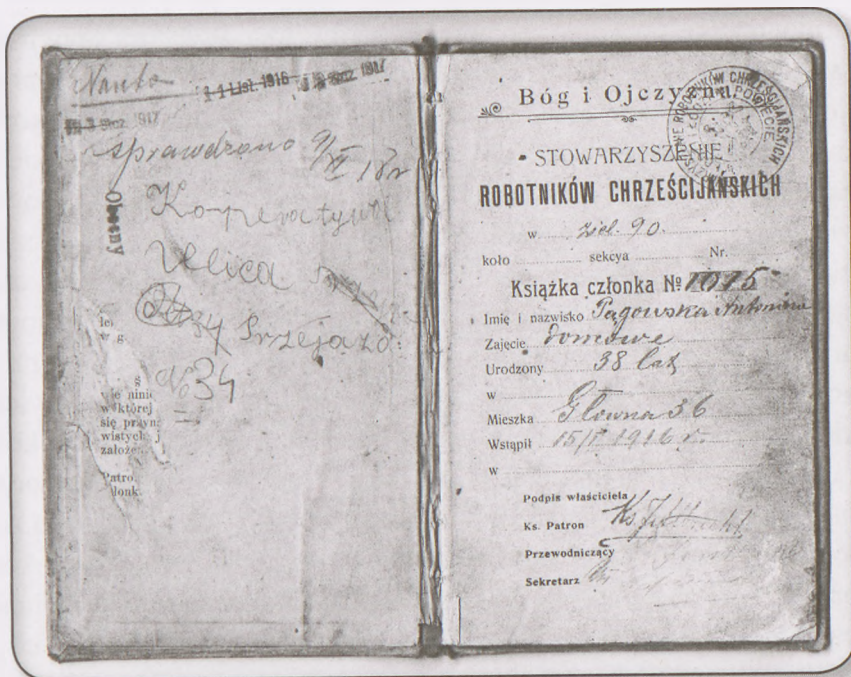 Nauka
11 List. 1916
sprawdzono 9/XII 18 r
Obecny
Koperatywa
Ulica
Przejazd
№ 34
ninie
w której
się przyn
wistych j
założe
Patro
donk.
Bóg i Ojczyzna
STOWARZYSZENIE
ROBOTNIKÓW CHRZEŚCIJAŃSKICH
w ziel. 90.
koło sekcya Nr.
Książka członka № 1015
Imię i nazwisko Pągowska Antonina
Zajęcie domowe
Urodzony 38 lat
w
Mieszka Główna 36
Wstąpił 15/I 1916 r.
w
Podpis właściciela
Ks. Patron Ks.
Przewodniczący
Sekretarz